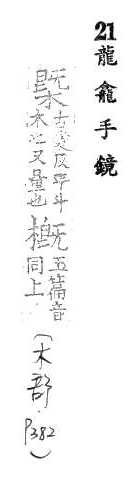 21 龍龕手鏡
槩 古愛反平斗
木也又量也 概 玉篇音
同上 (木部 P382)